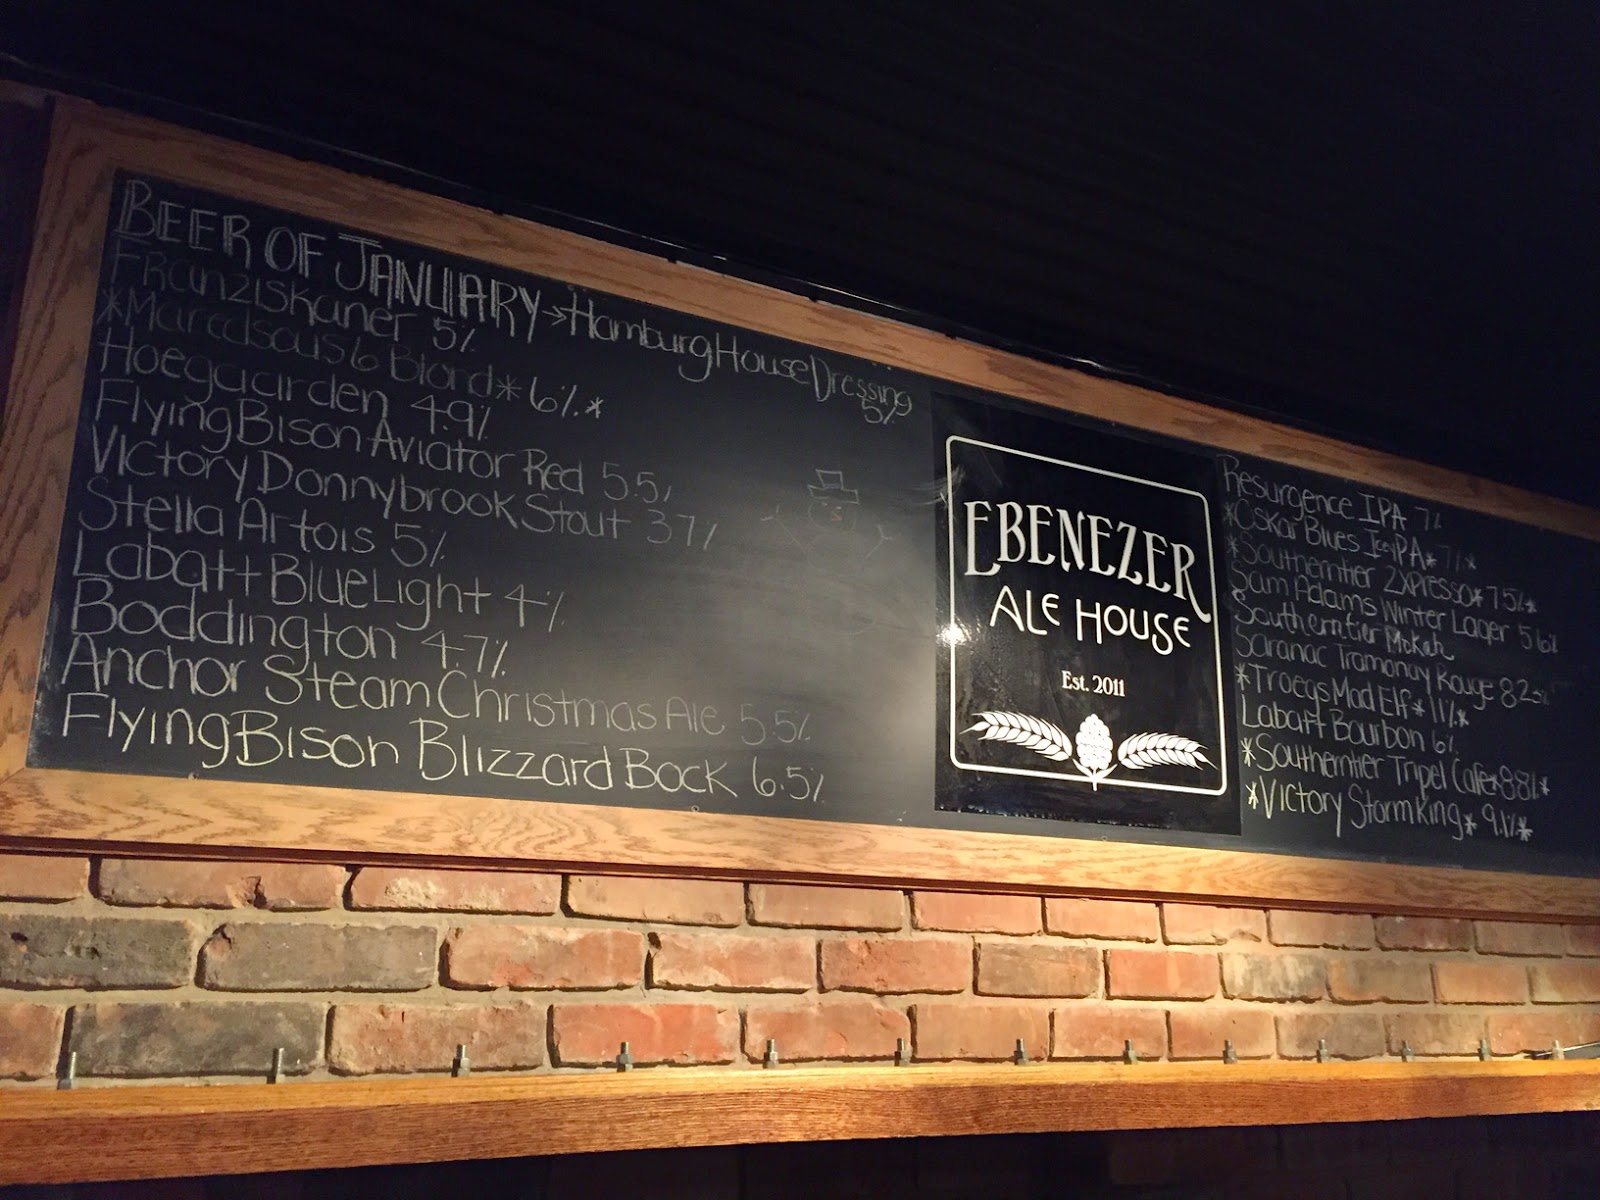 BEER OF JANUARY → Hamburg House Dressing
5%
Franziskaner 5%
*Maredsous 6 Blond* 6%*
Hoegaarden 4.9%
Flying Bison Aviator Red 5.5%
Victory Donnybrook Stout 3.7%
Stella Artois 5%
Labatt Blue Light 4%
Boddington 4.7%
Anchor Steam Christmas Ale 5.5%
Flying Bison Blizzard Bock 6.5%
EBENEZER
ALE HOUSE
Est. 2011
Resurgence IPA 7%
*Oskar Blues IPA* 7%*
*Southerntier 2Xpresso* 7.5%*
Sam Adams Winter Lager 5.6%
Southerntier Mokah
Saranac Tramonay Rouge 8.2%
*Troegs Mad Elf* 11%*
Labatt Bourbon 6%
*Southerntier Tripel Cafe* 8.8%*
*Victory Storm King* 9.1%*